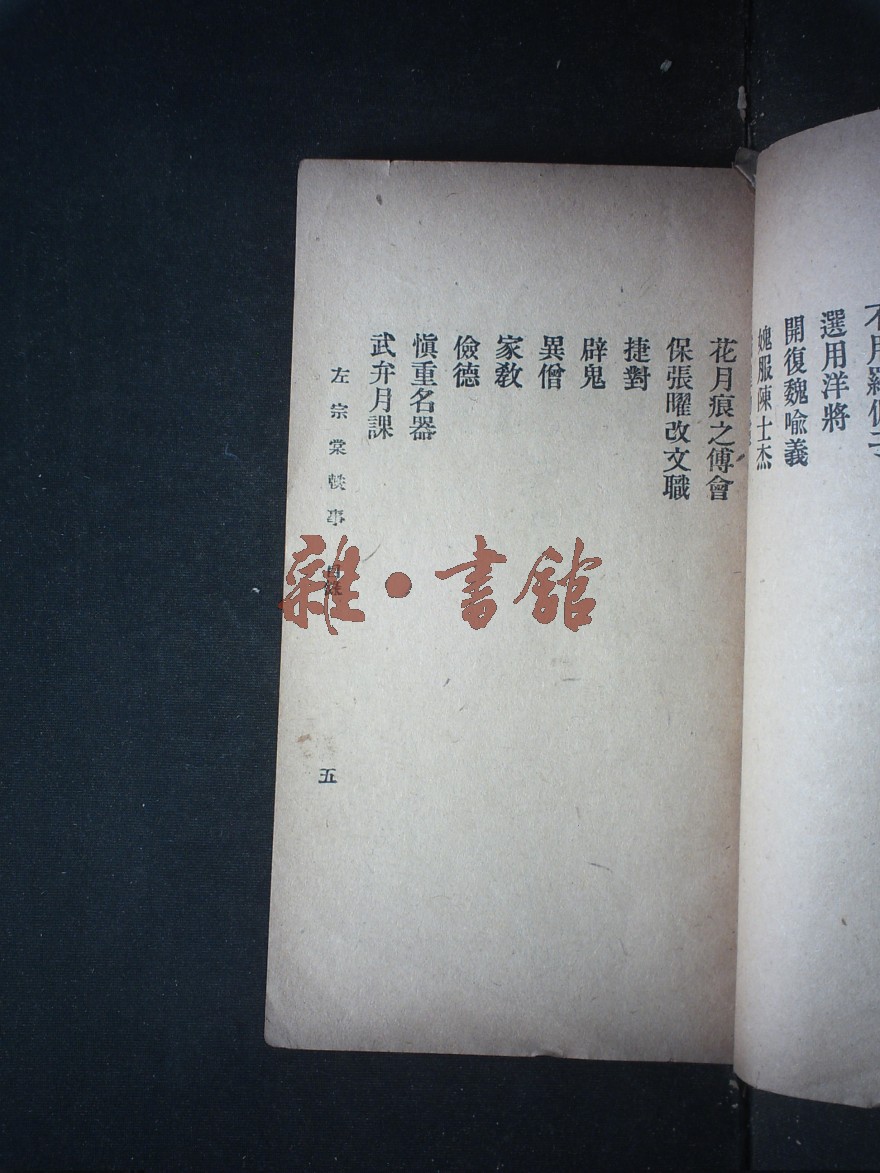 選用洋將
開復魏喩義
媿服陳士杰
花月痕之傅會
保張曜改文職
捷對
辟鬼
異僧
家教
儉德
愼重名器
武弁月課
左宗棠軼事 目錄 五
雜·書館